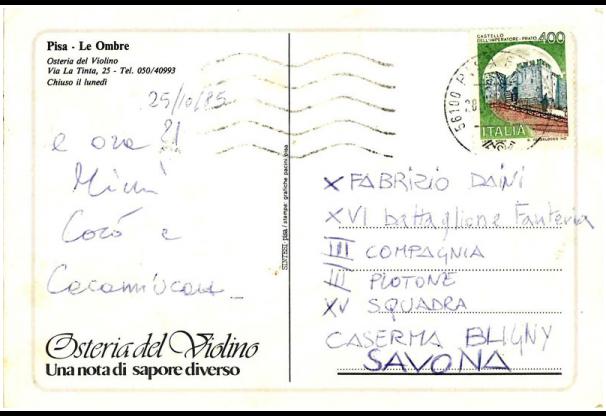 Pisa - Le Ombre
Osteria del Violino
Via La Tinta, 25 - Tel. 050/40993
Chiuso il lunedì
25/10/85
e ora
Mimì
Cocò e
SINTESI pisa / stampa: grafiche pacini/pisa
Osteria del Violino
Una nota di sapore diverso
CASTELLO
DELL'IMPERATORE - PRATO
400
ITALIA
56100
X FABRIZIO DAINI
XVI battaglione Fanteria
III COMPAGNIA
III PLOTONE
XV SQUADRA
CASERMA BLIGNY
SAVONA